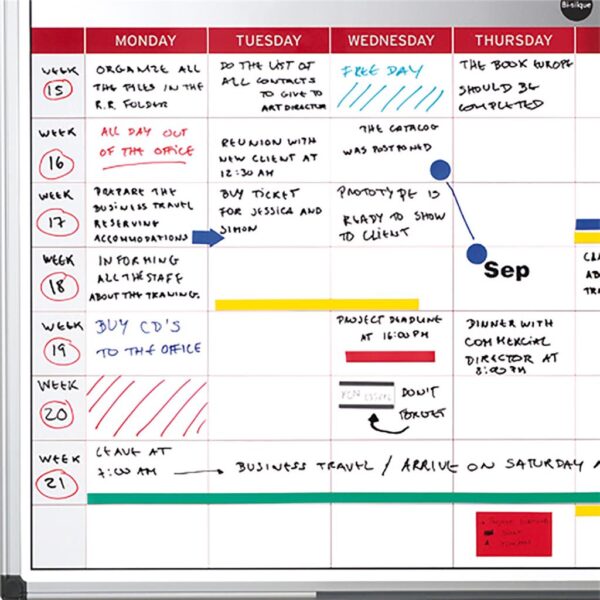 Bi-silque
MONDAY TUESDAY WEDNESDAY THURSDAY
WEEK
15
ORGANIZE ALL
THE FILES IN THE
R.R. FOLDER
DO THE LIST OF
ALL CONTACTS
TO GIVE TO
ART DIRECTOR
FREE DAY
THE BOOK EUROPE
SHOULD BE
COMPLETED
WEEK
16
ALL DAY OUT
OF THE OFFICE
REUNION WITH
NEW CLIENT AT
12:30 AM
THE CATALOG
WAS POSTPONED
WEEK
17
PREPARE THE
BUSINESS TRAVEL
RESERVING
ACCOMMODATIONS
BUY TICKET
FOR JESSICA AND
SIMON
PROTOTYPE IS
READY TO SHOW
TO CLIENT
Sep
WEEK
18
INFORMING
ALL THE STAFF
ABOUT THE TRAINING.
WEEK
19
BUY CD'S
TO THE OFFICE
PROJECT DEADLINE
AT 16:00 PM
DINNER WITH
COMMERCIAL
DIRECTOR AT
8:00 PM
WEEK
20
DON'T
FORGET
WEEK
21
LEAVE AT
7:00 AM
BUSINESS TRAVEL / ARRIVE ON SATURDAY